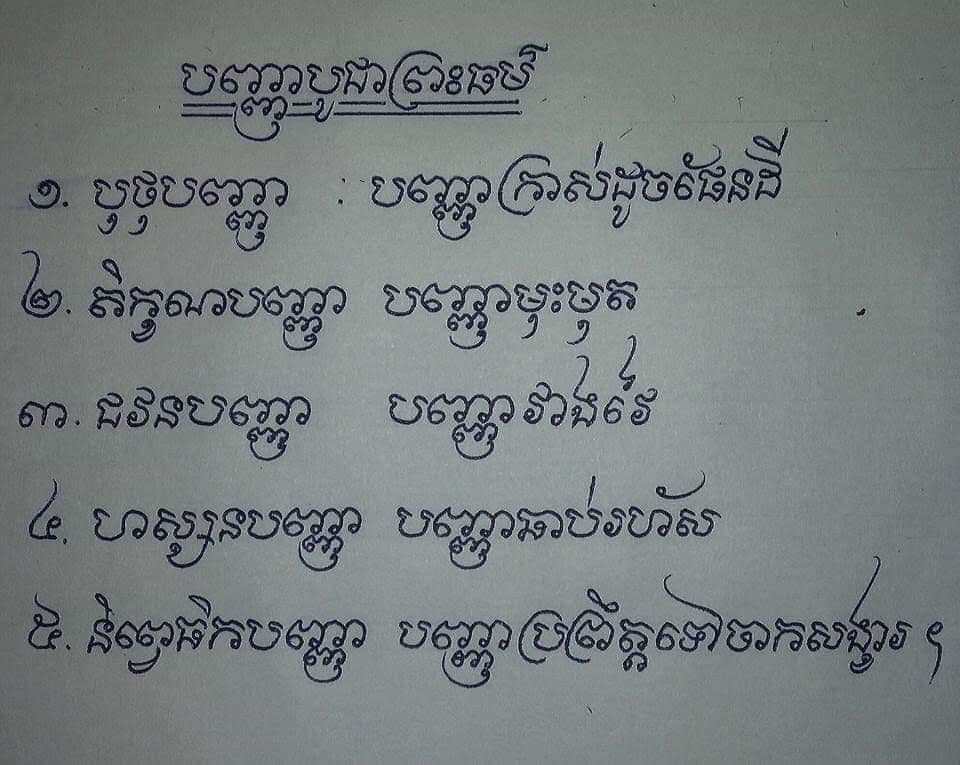 បញ្ញាបូជាព្រះធម៌
១. បុថុបញ្ញា : បញ្ញាក្រាស់ដូចផែនដី
២. តិក្ខណបញ្ញា បញ្ញាមុះមុត
៣. ជវនបញ្ញា បញ្ញាវាងវៃ
៤. ហាស្សនបញ្ញា បញ្ញាឆាប់រហ័ស
៥. និព្វេធិកបញ្ញា បញ្ញាប្រព្រឹត្តទៅចាកសង្ខារ ។